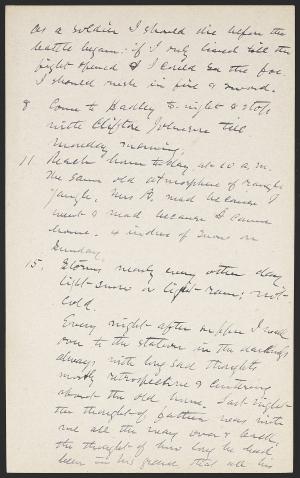 as a soldier I should die before the
battle began: if I only lived till the
fight opened & I could see the foe.
I should rush in fire & sword.
8 Come to Hadley to-night & stop
with Clifton Johnson till
Monday morning.
11. Reach home to-day at 10 a.m.
The same old atmosphere of
jangle. Mrs B. mad because I
went & mad because I came
home. 6 inches of snow on
Sunday.
15. Storms nearly every other day,
light-snow or light-rain; not-
cold.
Every night after supper I walk
over to the station in the darkness
always with long sad thoughts
mostly retrospective & centering
about the old home. Last night-
the thought of father was with
me all the way over & back,
the thought of how long he had
been in his grave that all his